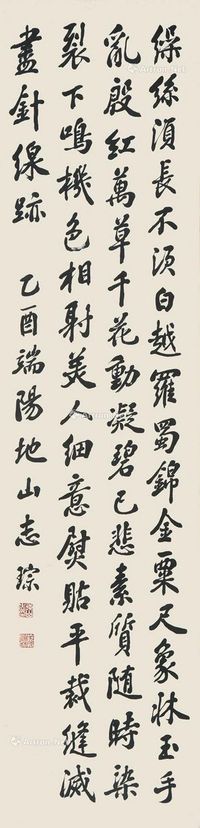 繰絲須長不須白越羅蜀錦金粟尺象牀玉手
亂殷紅萬草千花動凝碧已悲素質隨時染
裂下鳴機色相射美人細意熨貼平裁縫滅
盡針線跡 乙酉端陽地山志琮